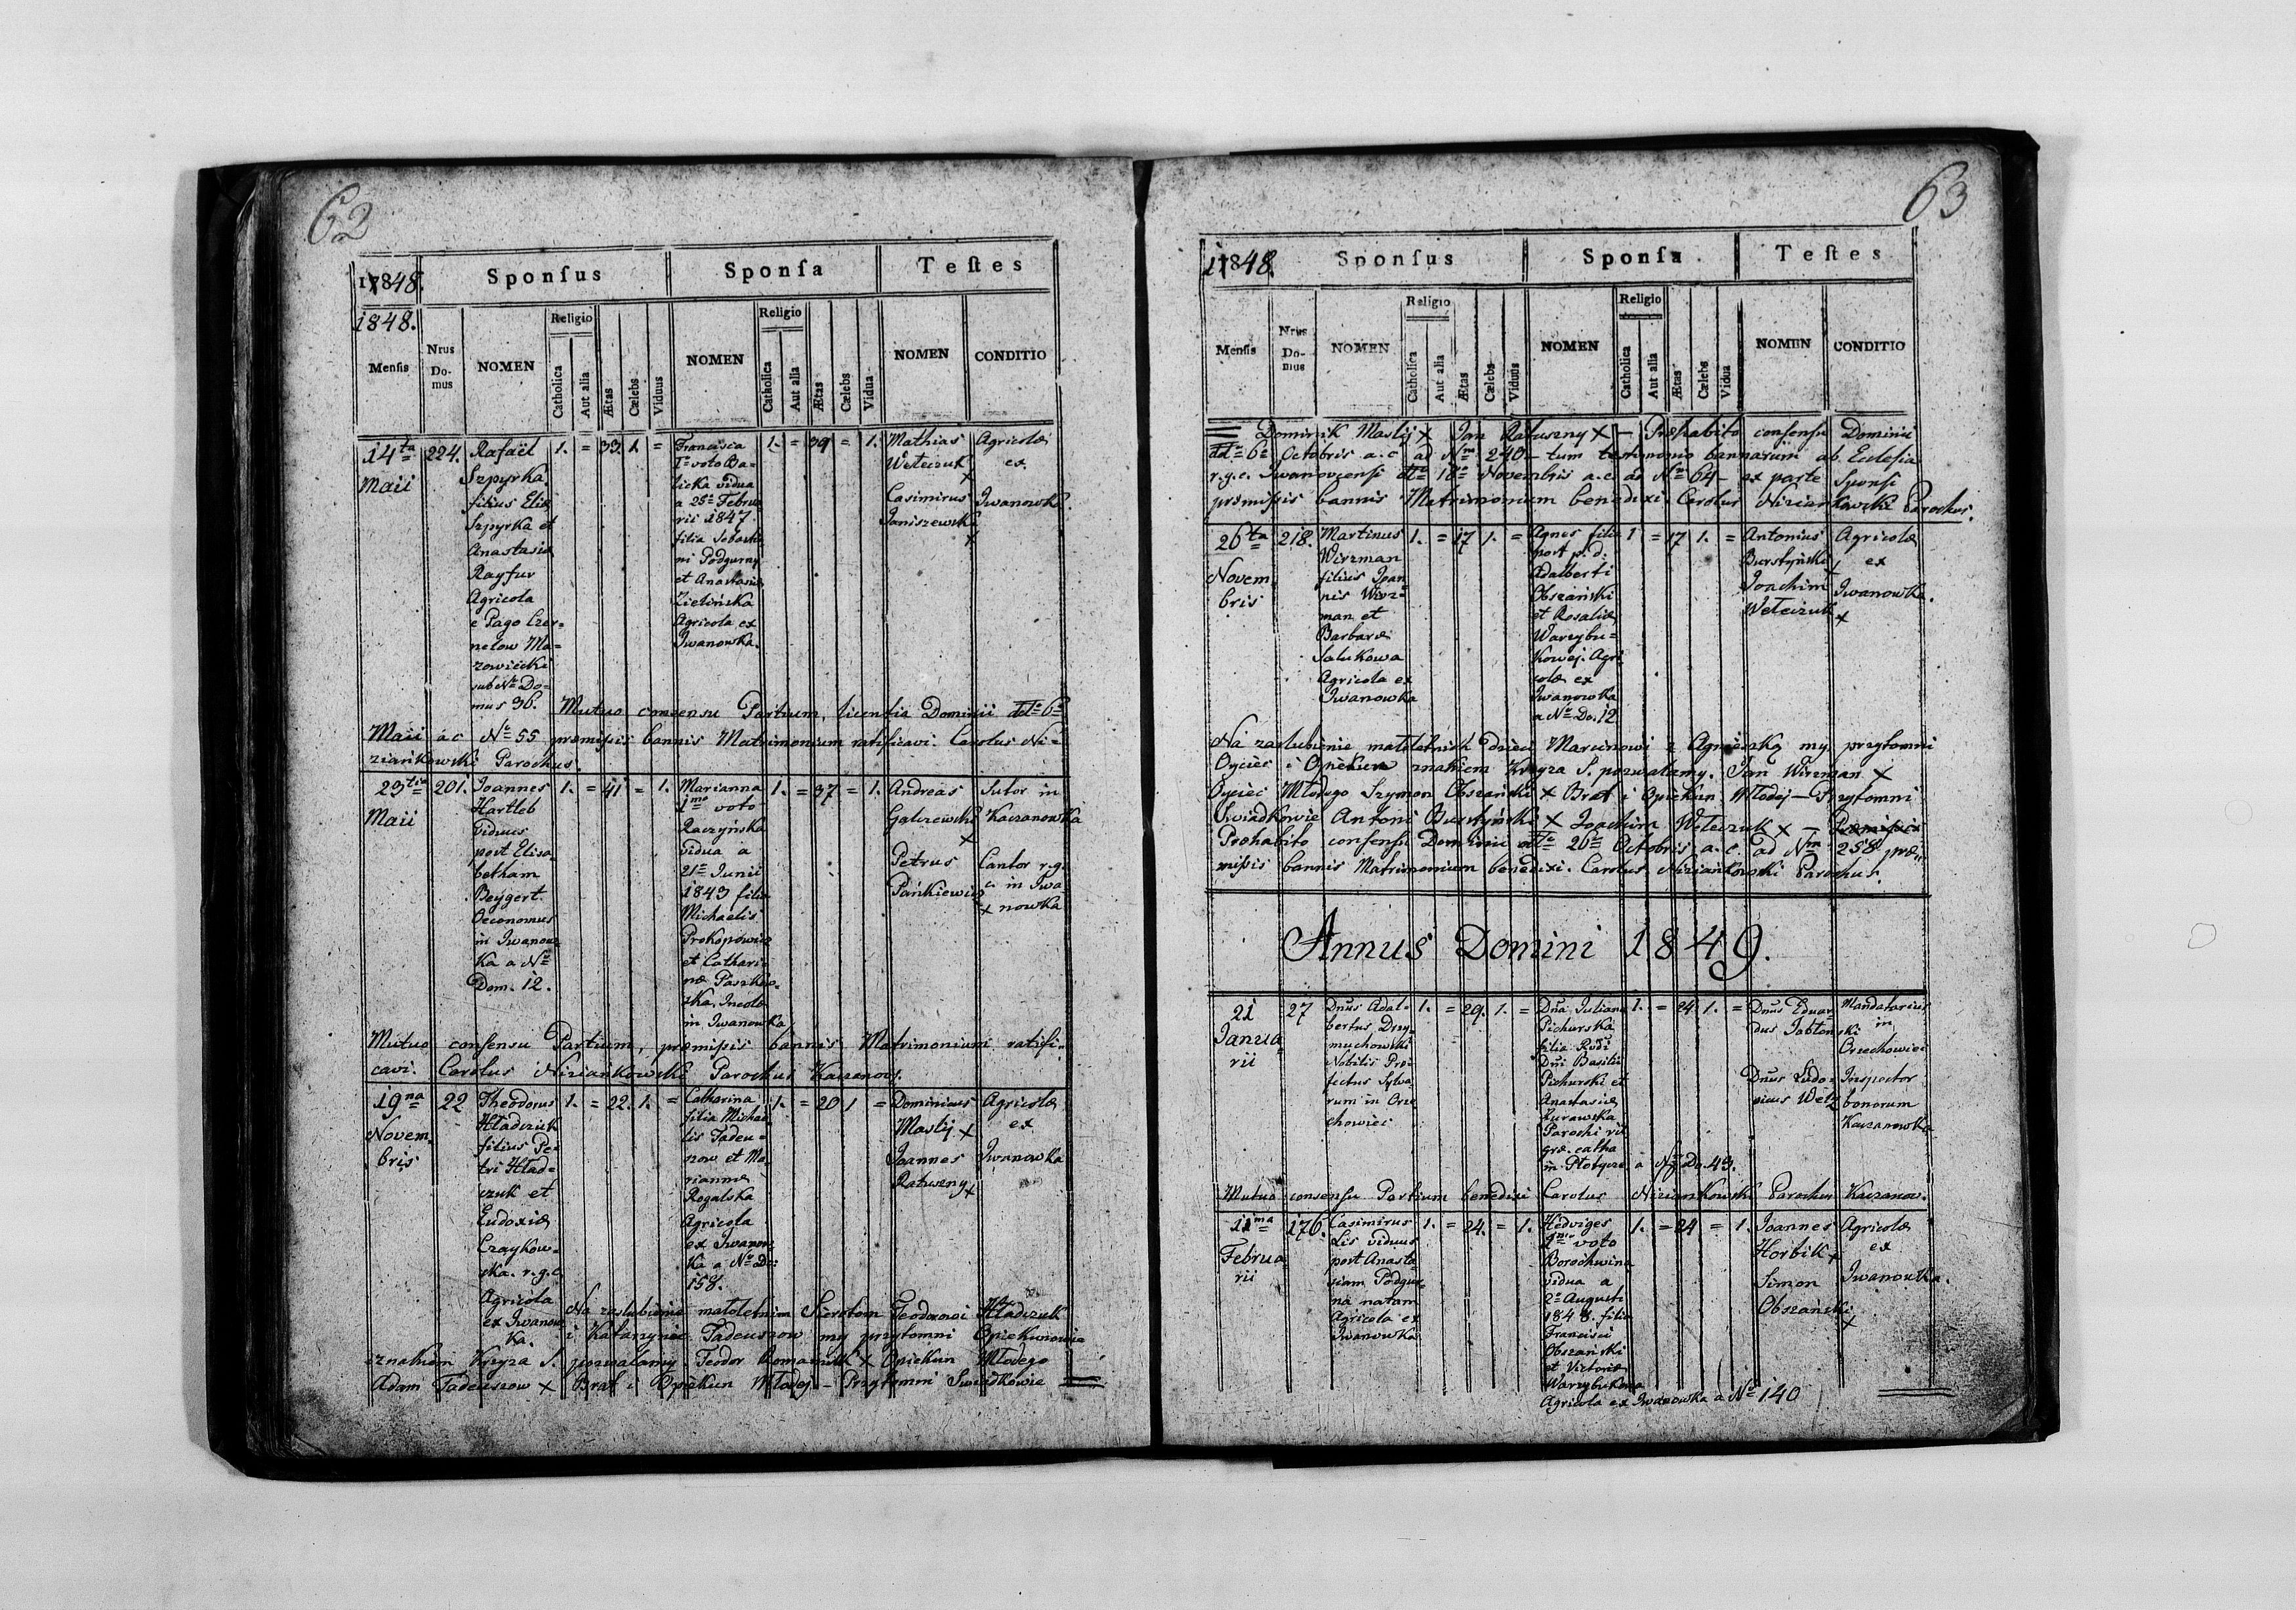 62
17848.
Sponſus
Sponſa
Teſtes
1848.
Menſis
Nrus Do- mus
NOMEN
Religio
Catholica
Aut alia
Ætas
Cælebs
Viduus
NOMEN
Religio
Catholica
Aut alia
Ætas
Cælebs
Vidua
NOMEN
CONDITIO
14ta
Maii
224.
Rafaël
Szpyrka
filius Eliæ
Szpyrka et
Anastasiæ
Rayfur
Agricola
e Pago Czer=
nelow Ma=
zowiecki
sub No Do=
mus 36.
1. = 33. 1. =
Francisca
1o voto Ba=
licka vidua
a 25a Februa
rii 1847
filia Sebastia
ni Podgurny
et Anastasiæ
Zielińska
Agricola ex
Iwanowka.
1. = 39 = 1.
Mathias
Weteczuk
x
Casimirus
Janiszewski
x
Agricolæ
ex
Iwanowka.
Mutuo consensu Partium, licentia Dominii ddto 6a
Maii a c No 55 præmissis bannis Matrimonium ratificavi. Carolus Ni=
ziankowski Parochus.
23tia
Maii
201.
Joannes
Hartleb
viduus
post Elisa
betham
Beygert
Oeconomus
in Iwanow=
ka a No
Dom. 12.
1. = 41 = 1.
Marianna
1mo voto
Raczyńska
vidua a
21a Junii
1843 filia
Michaelis
Prokopowicz
et Cathari=
næ Paszkow=
ska. Incola
in Iwanowka
1. = 37 = 1.
Andreas
Galczewski
x
Petrus
Pańkiewicz
Sutor in
Kaczanowka
Cantor r.g.
c. in Iwa=
x nowka
Mutuo consensu Partium, præmissis bannis Matrimonium ratifi=
cavi. Carolus Niziankowski Parochus Kaczanov.
19na
Novem
bris
22
Theodorus
Hładczuk
filius Pe=
tri Hład=
czuk et
Eudoxiæ
Czaykow=
ska. r.g.c.
Agricola
ex Iwanow
ka.
1. = 22. 1. =
Catharina
filia Michae
lis Tadeu=
szow et Ma=
riannæ
Rogalska
Agricola
ex Iwanow
ka a No Do:
158.
1. = 20 1 =
Dominicus
Maslij x
Joannes
Ratuszny x
Agricolæ
ex
Iwanowka
Na zaslubienie małoletnim Sierotom Teodorowi Hładczuk
i Katarzynie Tadeuszow my przytomni Opiekunowie
znakiem Krzyza S. pozwalamy. Teodor Romaniuk x Opiekun Młodego
Adam Tadeuszow x Brat i Opiekun Młodej — Przytomni Swiadkowie
63
17848.
Sponſus
Sponſa
Teſtes
Menſis
Nrus Do- mus
NOMEN
Religio
Catholica
Aut alia
Ætas
Cælebs
Viduus
NOMEN
Religio
Catholica
Aut alia
Ætas
Cælebs
Vidua
NOMEN
CONDITIO
Dominik Maslij x Jan Ratuszny x — Præhabito consensu Dominii
ddto 6a Octobris a.c ad Nm 240 — tum testimonio bannorum ab Ecclesia
r.g.c. Iwanovcensi dto 18a Novembris a.c. ad No 64 — ex parte Sponsi
præmissis bannis Matrimonium benedixi Carolus Niziankowski Parochus.
26ta
Novem
bris
218.
Martinus
Wirzman
filius Joan
nis Wirz=
man et
Barbaræ
Salukowa
Agricola ex
Iwanowka
1. = 17 1. =
Agnes filia
post p. d.
Adalberti
Obszański
et Rosaliæ
Warzybu=
kowej. Agri
colæ ex
Iwanowka
a No Do. 12
1 = 17 1. =
Antonius
Bursztyński x
Joachim
Weteczuk x
Agricolæ
ex
Iwanowka.
Na zaslubienie małoletnich dzieci Marcinowi z Agnieszką my przytomni
Oyciec i Opiekun znakiem Krzyza S. pozwalamy. Jan Wirzman x
Oyciec Młodego Szymon Obszański x Brat i Opiekun Młodej — Przytomni
Swiadkowie Antoni Bursztyński x Joachim Weteczuk x —
Prehabito consensu Dominii ddto 26a Octobris a. c. ad Nm 258 præ=
missis bannis Matrimonium benedixi. Carolus Niziankowski Parochus.
Annus Domini 1849.
21
Janua
rii
27
Dnus Adal=
bertus Dzy=
muchowski
Nobilis Præ
fectus Sylva
rum in Orze
chowiec
1. = 29. 1. =
Dna Juliana
Pichurska
filia Rndi
Dni Basilii
Pichurski et
Anastasiæ
Zurawska
Parochi rit
græ. catho
in Płotycze a No Do. 43.
1. = 24. 1. =
Dnus Eduar
dus Jabłoń
ski
Dnus Ludo=
vicus Welz
Mandatarius
in
Orzechowiec
Inspector
bonorum
Kaczanowka
Mutuo consensu Partium benedixi Carolus Niziankowski Parochus Kaczanov.
11ma
Februa
rii
176.
Casimirus
Lis viduus
post Anasta
siam Podgur
na natam
Agricola ex
Iwanowka
1. = 24. = 1.
Hedviges
1mo voto
Borochwina
vidua a
2a Augusti
1848. filia
Francisci
Obszański
et Victoriæ
Warzybukowa
Agricola ex Iwanowka a No 140
1. = 24 = 1.
Joannes
Horbik x
Simon
Obszański
x
Agricolæ
ex
Iwanowka.